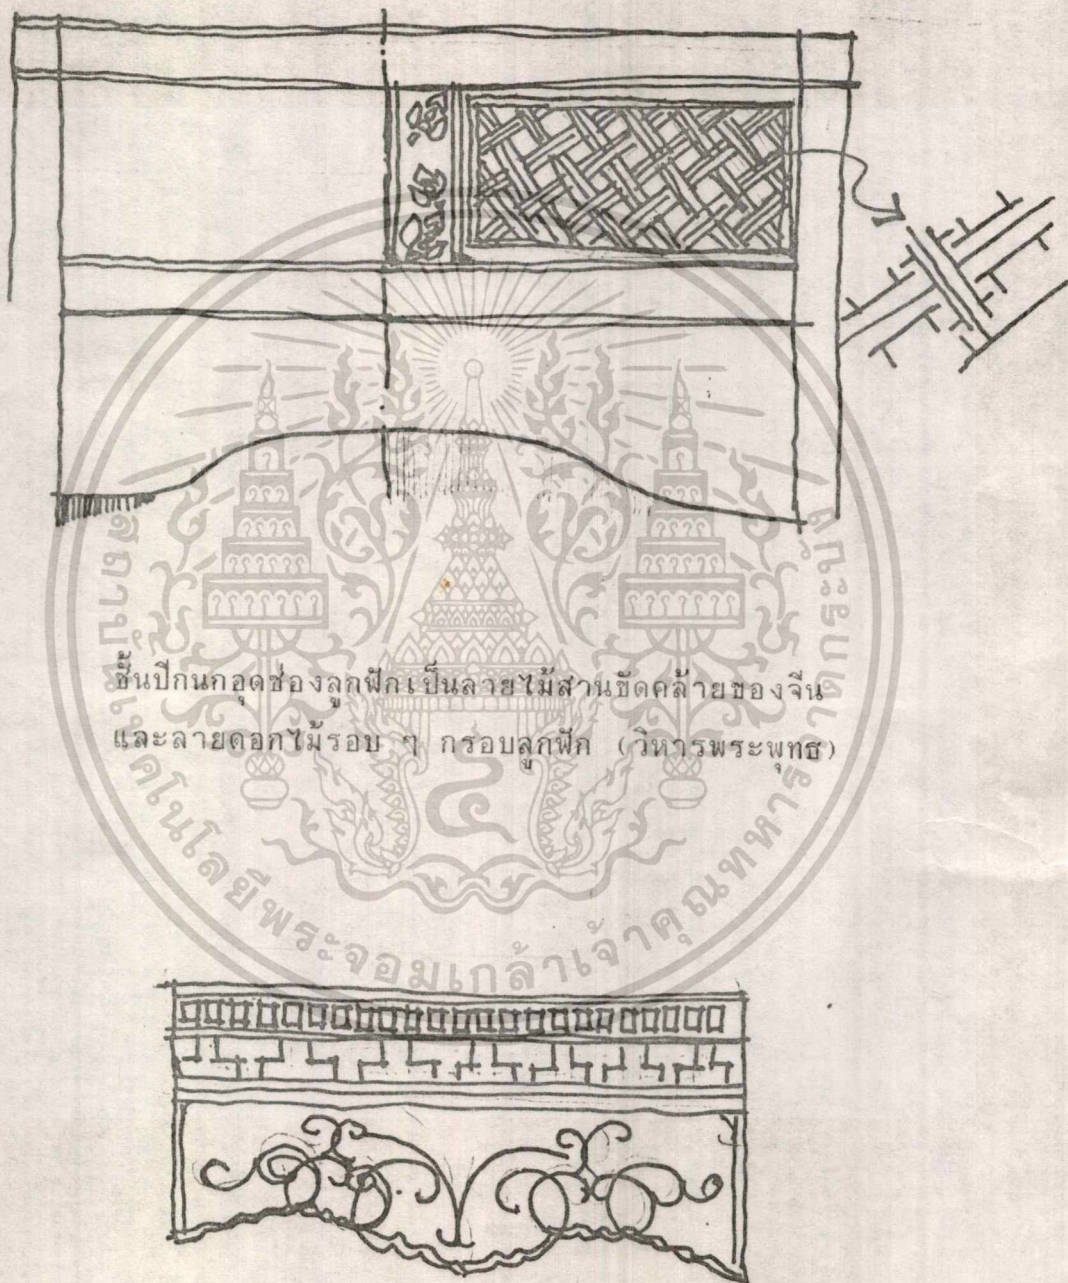 ชื้นปีกนกอุดช่องลูกฟักเป็นลายไม้สานขัดคล้ายของจีน
และลายดอกไม้รอบ ๆ กรอบลูกฟัก (วิหารพระพุทธ)
สถาบันเทคโนโลยีพระจอมเกล้าเจ้าคุณทหารลาดกระบัง